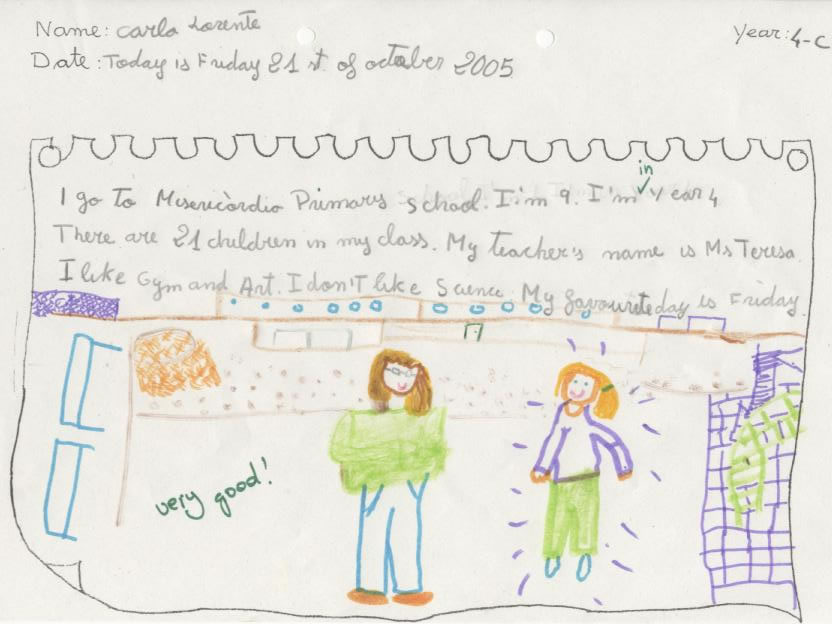 Name: carla Lorente
Year: 4-C
Date: Today is Friday 21 st. of october 2005
in
I go to Misericòrdia Primary school. I'm 9. I'm year 4
There are 21 children in my class. My teacher's name is Ms Teresa.
I like Gym and Art. I don't like Science. My favourite day is Friday.
very good!